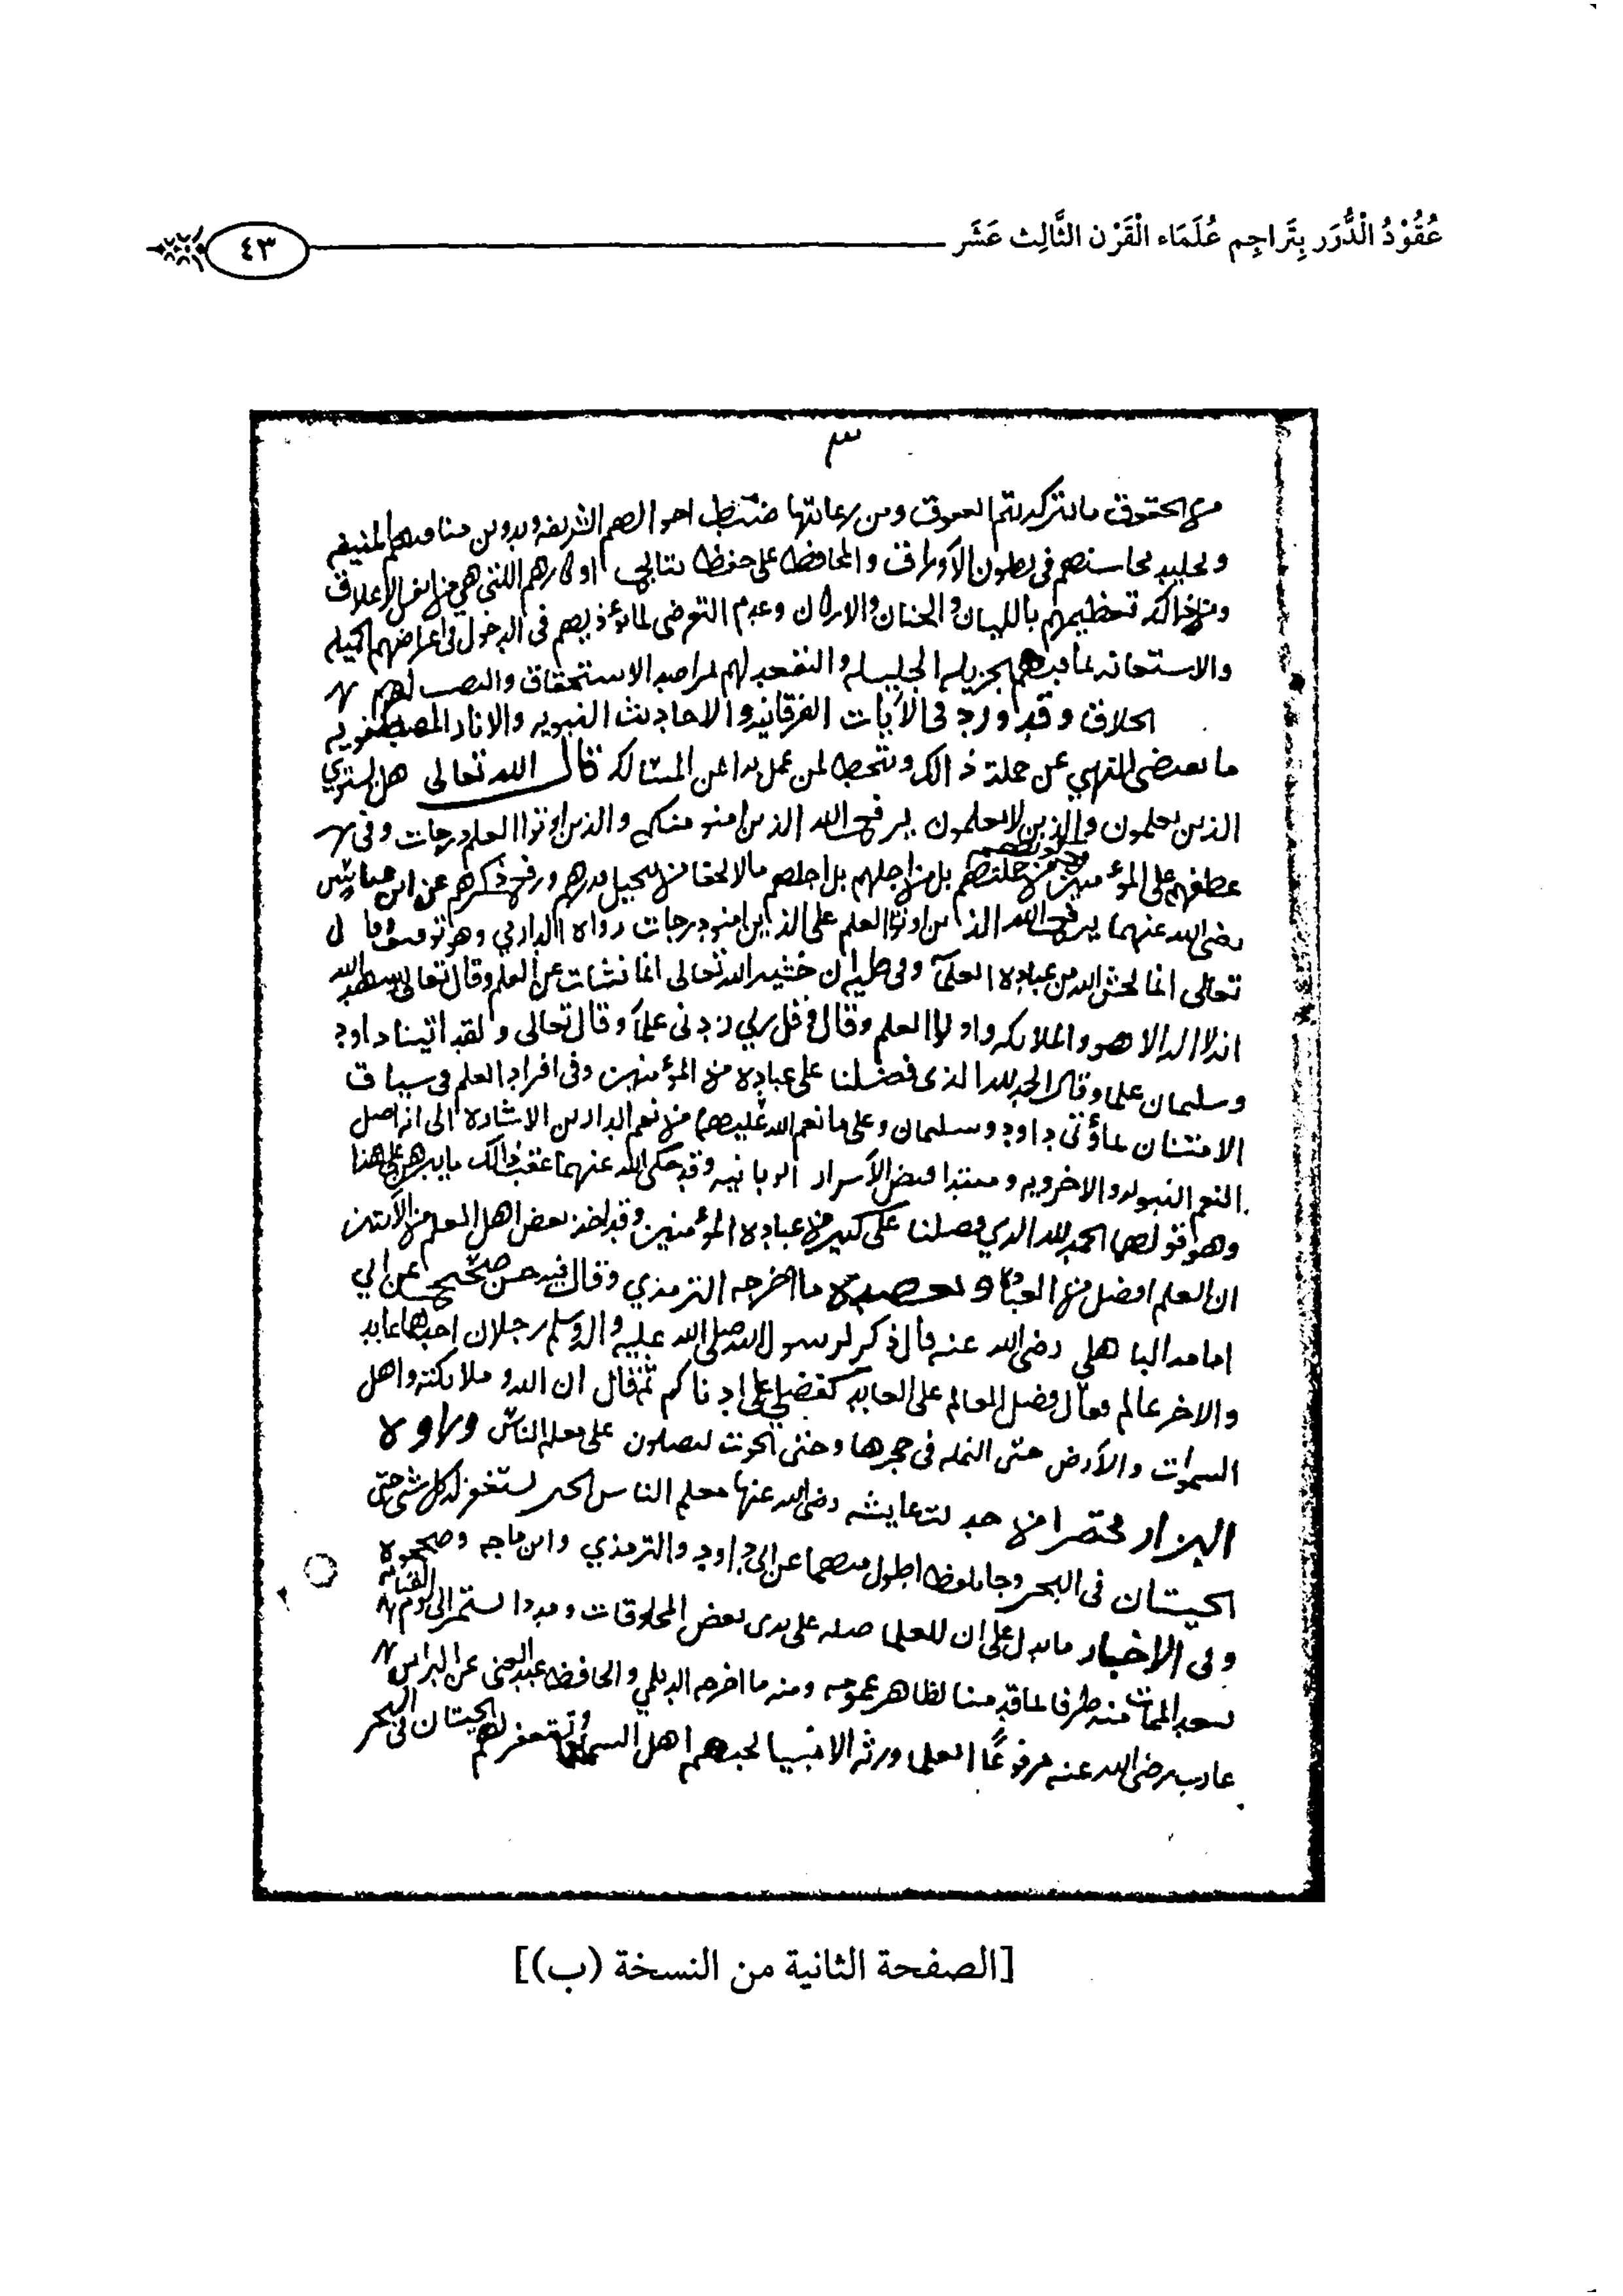 عُقُوْدُ الْدُّرَر بِتَراجِم عُلَمَاء الْقَرْن الثَّالِث عَشَر
٤٣
٣
من الحقوق ما بتركه يتم العقوق ومن رعاتها ضبط احوالهم الشريفه وبدوين مناقبهم المنيفه
و محاسنهم في بطون الأوراق والمحافظه على حفظ نتايج افكارهم اللتي هي من انفس الاعلاق
ومن ذالك تعظيمهم باللسان والجنان والاركان وعدم التعرض لما يؤذيهم في الدخول في اعراضهم
والاستهانه بما الجزيله الجليله والتقعد لهم لمراصد الاستحقاق والنصب لهم
وقد ورد في الآيات الفرقانيه والاحاديث النبويه والاثار المصطفويه
ما يقتضي النهي عن جملة ذالك لمن عمل بدا عن المسالك قال الله تعالى هل يستوي
الذين يعلمون والذين لا يعلمون يرفع الله الذين امنو منكم والذين اوتوا العلم درجات وفي
عطفهم على المؤمنين من جملتهم بل من اجلهم بل اجلهم ما لا يخفا من تبجيل قدرهم ورفع ذكرهم عن ابن عباس
رضي الله عنهما يرفع الله الذين اوتوا العلم على الذين امنو درجات رواه الدارمي وهو قال
تعالى انما يخش الله من عباده العلمآ وفي طيه ان خشية الله تعالى انما نشات عن العلم وقال تعالى شهد الله
انه لا اله الا هو والملائكه واولوا العلم وقال وقل ربي زدني علمآ وقال تعالى ولقد اتينا داود
وسليمان علما وقالا الحمد لله الذي فضلنا على عباده من المؤمنين وفي افراد العلم في سياق
الامتنان لما اؤتي داود وسليمان وعلى ما نعم الله عليهما من نعم الدارين الاشاره الى انه اصل
النعم والاخرويه ومبتدا فيض الأسرار الربانيه وقد حكى الله عنهما عقب ذالك ما يبرهن على هذا
وهو قولهما الحمد لله الذي فضلنا على كثير من عباده المؤمنين وقد اخذ بعض اهل العلم من الآيتين
ان العلم افضل من العباده ويعضده ما اخرجه الترمذي وقال فيه حسن صحيح عن ابي
امامه الباهلي رضي الله عنه قال ذكر لرسول الله صلى الله عليه واله وسلم رجلان احدهما عابد
والاخر عالم فقال فضل العالم على العابد كفضلي على ادناكم ثم قال ان الله وملائكته واهل
السموات والأرض حتى النمله في جحرها وحتى الحوت ليصلون على معلم الناس ورواه
البزار مختصرا من حديث عايشه رضي الله عنها معلم الناس الخير يستغفر له كل شي حتى
الحيتان في البحر وجا بلفظ اطول منهما عن ابي داود والترمذي وابن ماجه وصححوه
وفي الاخبار ما يدل على ان للعلما صله على يدى بعض المخلوقات وهذا استمر الى يوم القيامه
بعد الممات منه طرفا لما قدمنا لظاهر عمومه ومنه ما اخرجه الديلمي والحافظ عبد الغني عن البراء بن
عازب رضي الله عنه مرفوعًا العلما ورثه الانبيا يحبهم اهل السما وتستغفر لهم الحيتان في البحر
[الصفحة الثانية من النسخة (ب)]